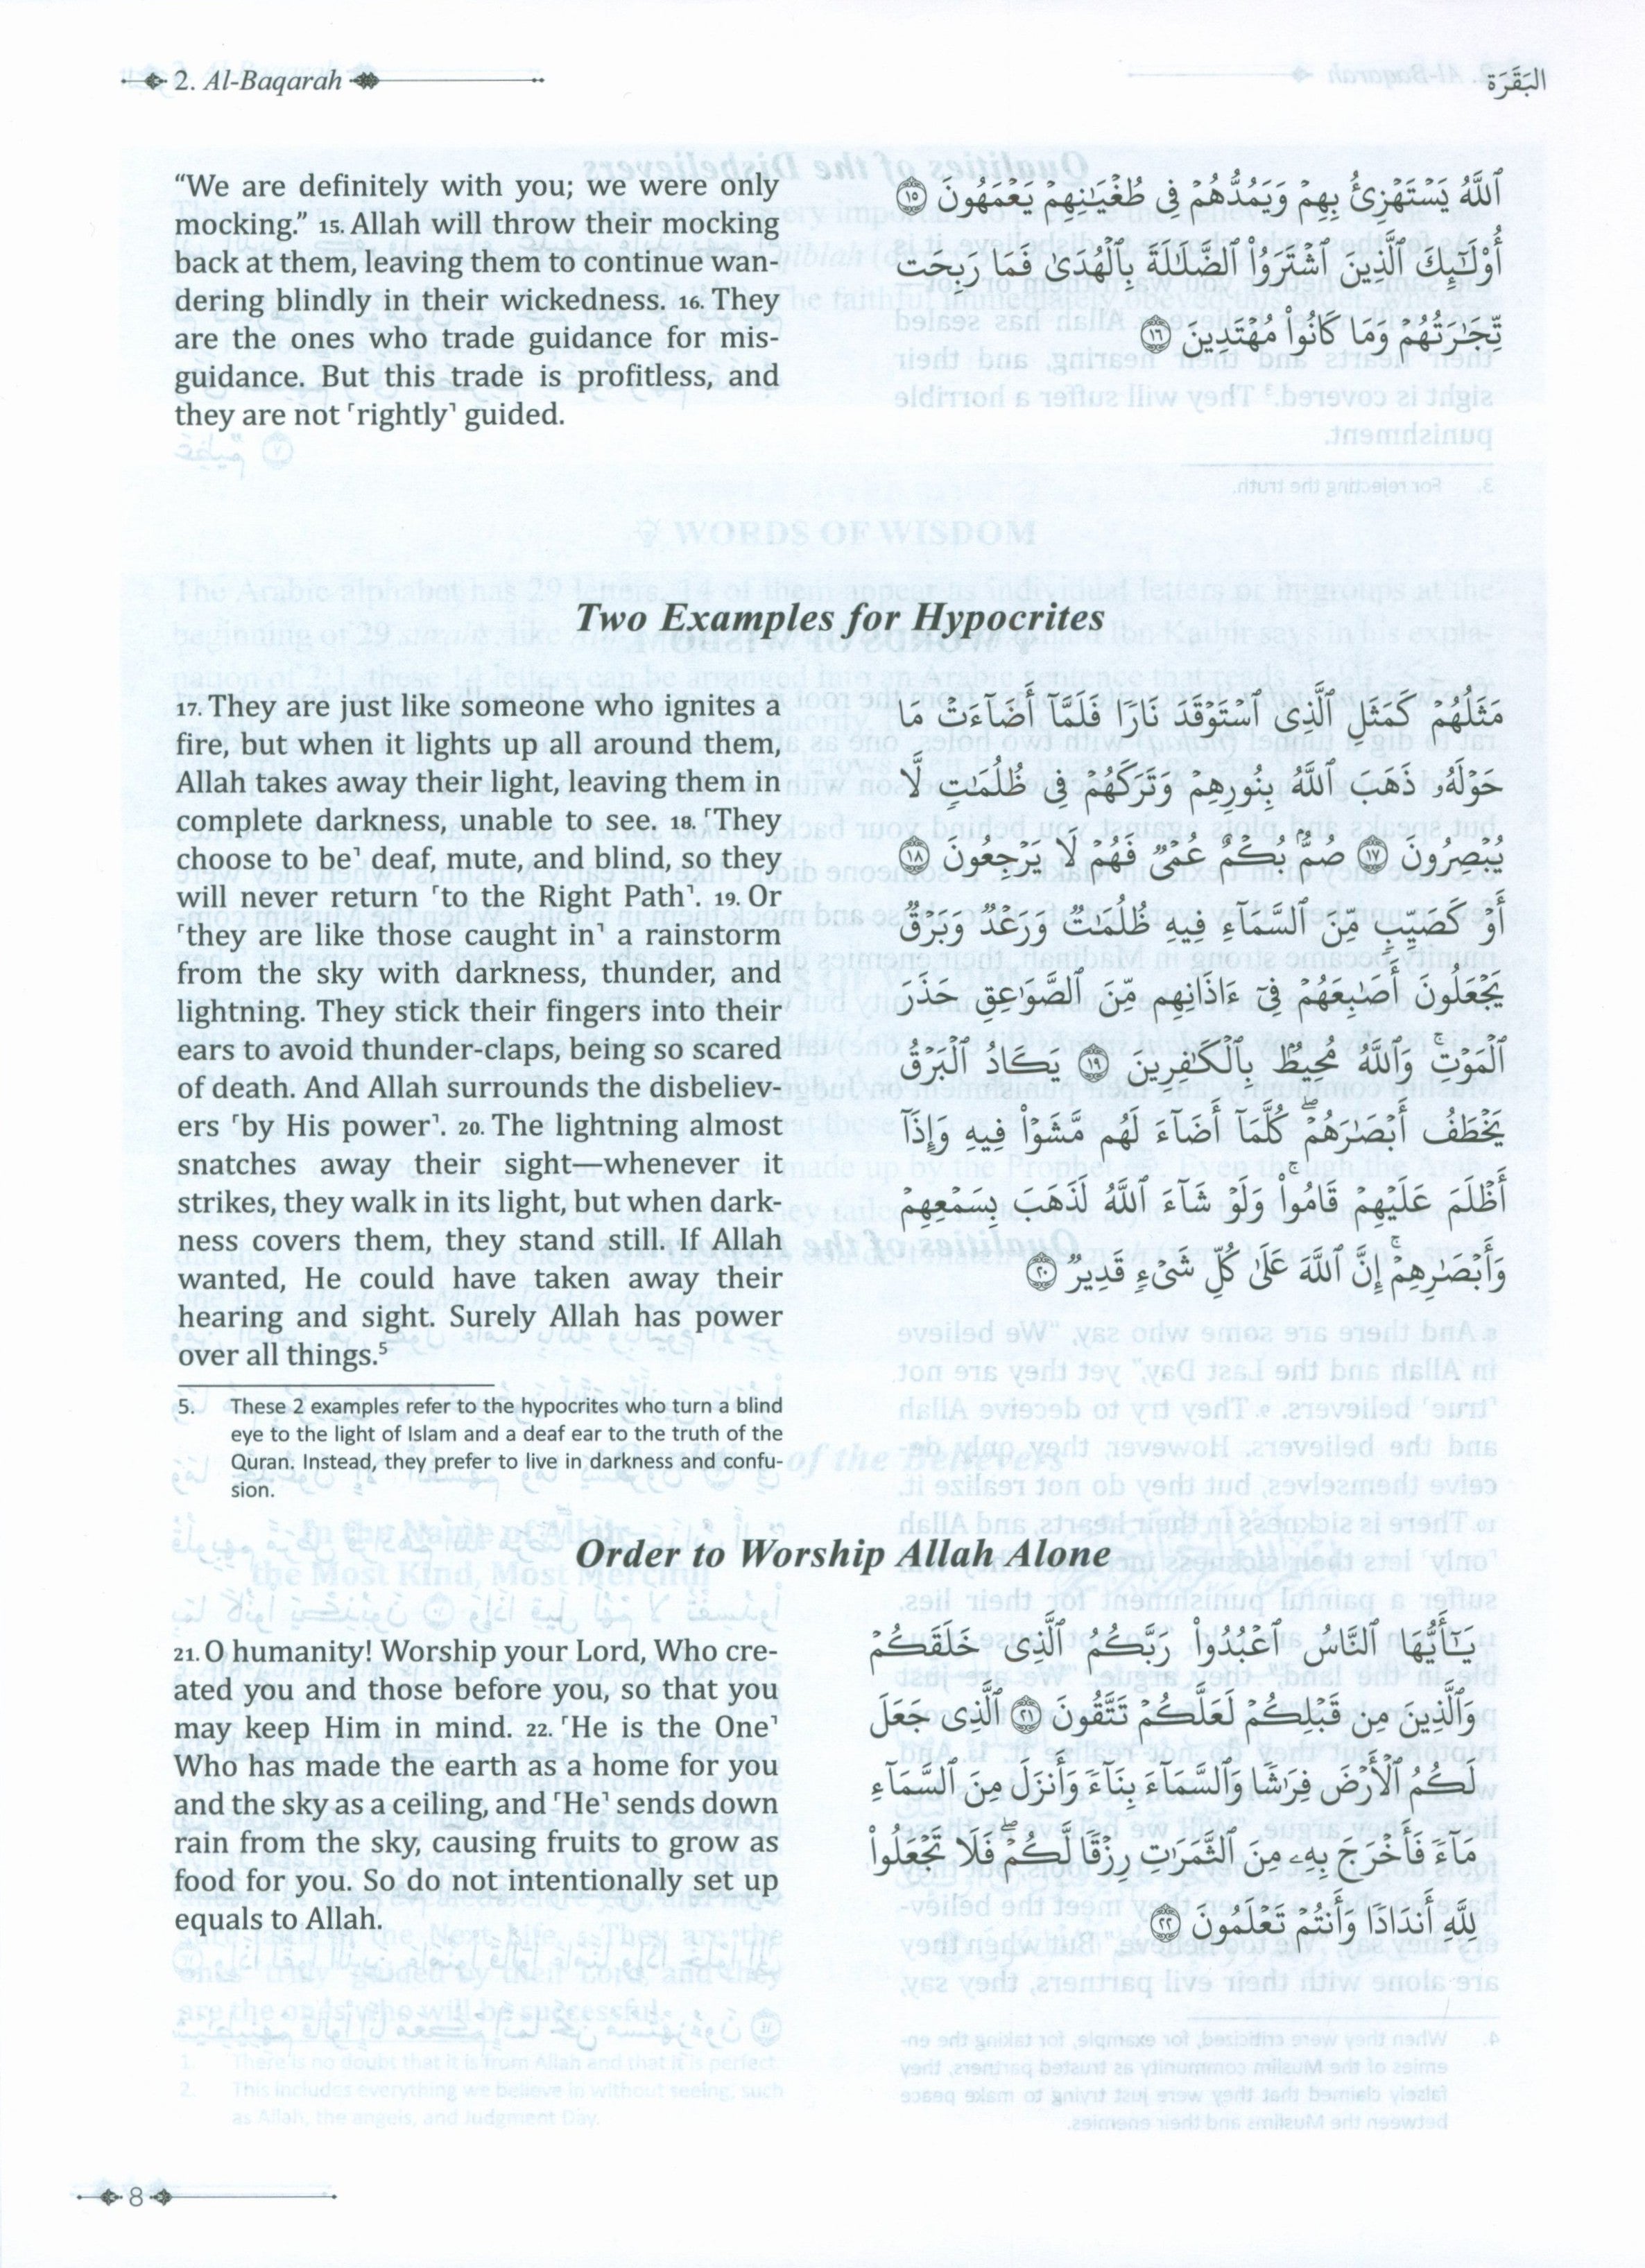 2. Al-Baqarah
البَقَرَة
“We are definitely with you; we were only
mocking.” 15. Allah will throw their mocking
back at them, leaving them to continue wan-
dering blindly in their wickedness. 16. They
are the ones who trade guidance for mis-
guidance. But this trade is profitless, and
they are not ˹rightly˺ guided.
ٱللَّهُ يَسْتَهْزِئُ بِهِمْ وَيَمُدُّهُمْ فِى طُغْيَـٰنِهِمْ يَعْمَهُونَ ١٥
أُو۟لَـٰٓئِكَ ٱلَّذِينَ ٱشْتَرَوُا۟ ٱلضَّلَـٰلَةَ بِٱلْهُدَىٰ فَمَا رَبِحَت
تِّجَـٰرَتُهُمْ وَمَا كَانُوا۟ مُهْتَدِينَ ١٦
Two Examples for Hypocrites
17. They are just like someone who ignites a
fire, but when it lights up all around them,
Allah takes away their light, leaving them in
complete darkness, unable to see. 18. ˹They
choose to be˺ deaf, mute, and blind, so they
will never return ˹to the Right Path˺. 19. Or
˹they are like those caught in˺ a rainstorm
from the sky with darkness, thunder, and
lightning. They stick their fingers into their
ears to avoid thunder-claps, being so scared
of death. And Allah surrounds the disbeliev-
ers ˹by His power˺. 20. The lightning almost
snatches away their sight—whenever it
strikes, they walk in its light, but when dark-
ness covers them, they stand still. If Allah
wanted, He could have taken away their
hearing and sight. Surely Allah has power
over all things.5
مَثَلُهُمْ كَمَثَلِ ٱلَّذِى ٱسْتَوْقَدَ نَارًا فَلَمَّآ أَضَآءَتْ مَا
حَوْلَهُۥ ذَهَبَ ٱللَّهُ بِنُورِهِمْ وَتَرَكَهُمْ فِى ظُلُمَـٰتٍ لَّا
يُبْصِرُونَ ١٧ صُمٌّۢ بُكْمٌ عُمْىٌ فَهُمْ لَا يَرْجِعُونَ ١٨
أَوْ كَصَيِّبٍ مِّنَ ٱلسَّمَآءِ فِيهِ ظُلُمَـٰتٌ وَرَعْدٌ وَبَرْقٌ
يَجْعَلُونَ أَصَـٰبِعَهُمْ فِىٓ ءَاذَانِهِم مِّنَ ٱلصَّوَٰعِقِ حَذَرَ
ٱلْمَوْتِ ۚ وَٱللَّهُ مُحِيطٌۢ بِٱلْكَـٰفِرِينَ ١٩ يَكَادُ ٱلْبَرْقُ
يَخْطَفُ أَبْصَـٰرَهُمْ ۖ كُلَّمَآ أَضَآءَ لَهُم مَّشَوْا۟ فِيهِ وَإِذَآ
أَظْلَمَ عَلَيْهِمْ قَامُوا۟ ۚ وَلَوْ شَآءَ ٱللَّهُ لَذَهَبَ بِسَمْعِهِمْ
وَأَبْصَـٰرِهِمْ ۚ إِنَّ ٱللَّهَ عَلَىٰ كُلِّ شَىْءٍ قَدِيرٌ ٢٠
5. These 2 examples refer to the hypocrites who turn a blind
eye to the light of Islam and a deaf ear to the truth of the
Quran. Instead, they prefer to live in darkness and confu-
sion.
Order to Worship Allah Alone
21. O humanity! Worship your Lord, Who cre-
ated you and those before you, so that you
may keep Him in mind. 22. ˹He is the One˺
Who has made the earth as a home for you
and the sky as a ceiling, and ˹He˺ sends down
rain from the sky, causing fruits to grow as
food for you. So do not intentionally set up
equals to Allah.
يَـٰٓأَيُّهَا ٱلنَّاسُ ٱعْبُدُوا۟ رَبَّكُمُ ٱلَّذِى خَلَقَكُمْ
وَٱلَّذِينَ مِن قَبْلِكُمْ لَعَلَّكُمْ تَتَّقُونَ ٢١ ٱلَّذِى جَعَلَ
لَكُمُ ٱلْأَرْضَ فِرَٰشًا وَٱلسَّمَآءَ بِنَآءً وَأَنزَلَ مِنَ ٱلسَّمَآءِ
مَآءً فَأَخْرَجَ بِهِۦ مِنَ ٱلثَّمَرَٰتِ رِزْقًا لَّكُمْ ۖ فَلَا تَجْعَلُوا۟
لِلَّهِ أَندَادًا وَأَنتُمْ تَعْلَمُونَ ٢٢
8